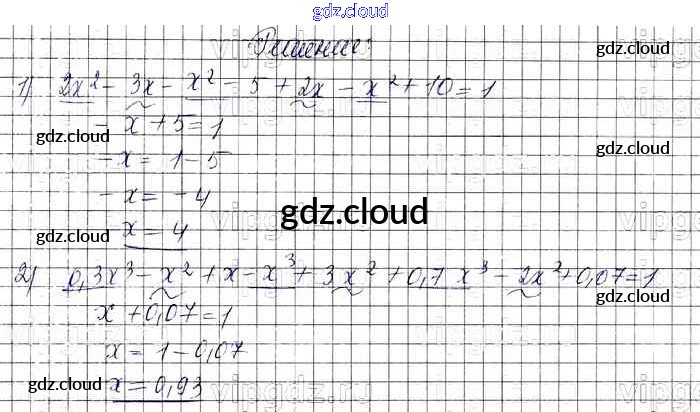 gdz.cloud
Решение:
gdz.cloud
1) 2x² - 3x - x² - 5 + 2x - x² + 10 = 1
gdz.cloud
- x + 5 = 1
gdz.cloud
gdz.cloud
- x = 1 - 5
- x = - 4
gdz.cloud
x = 4
gdz.cloud
gdz.cloud
2) 0,3x³ - x² + x - x³ + 3x² + 0,7x³ - 2x² + 0,07 = 1
gdz.cloud
x + 0,07 = 1
x = 1 - 0,07
gdz.cloud
x = 0,93
gdz.cloud
vipgdz.ru